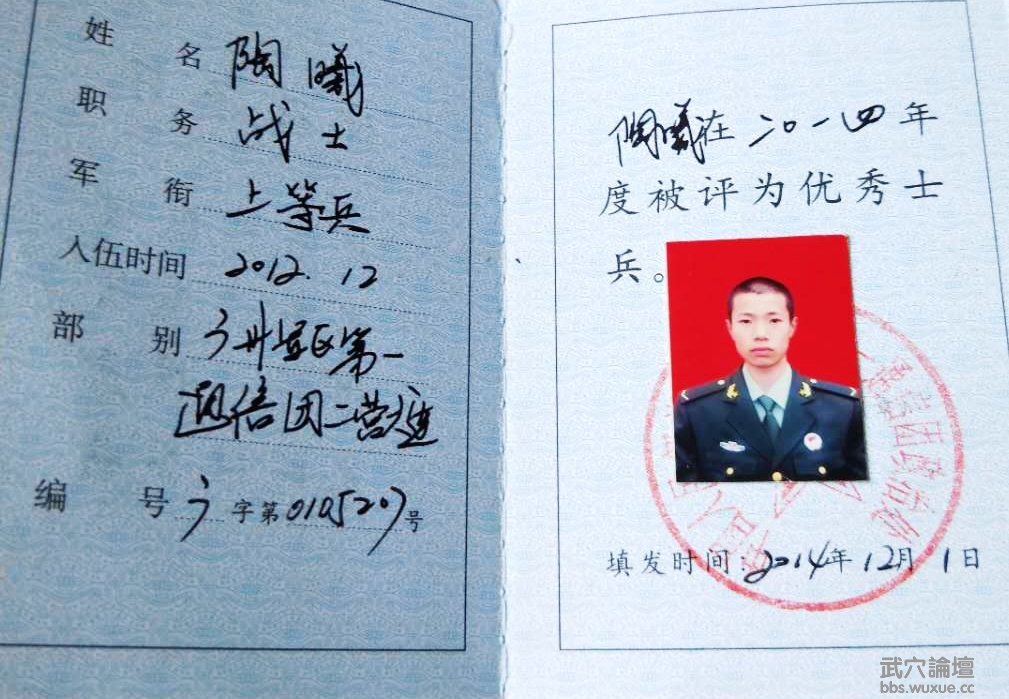 姓 名 陶曦
职 务 战士
军 衔 上等兵
入伍时间 2012.12
部 别 广州军区第一
通信团二营连
编 号 广字第010520号
陶曦在二〇一四年
度被评为优秀士
兵。
填发时间：2014年12月1日
武穴論壇
bbs.wuxue.cc